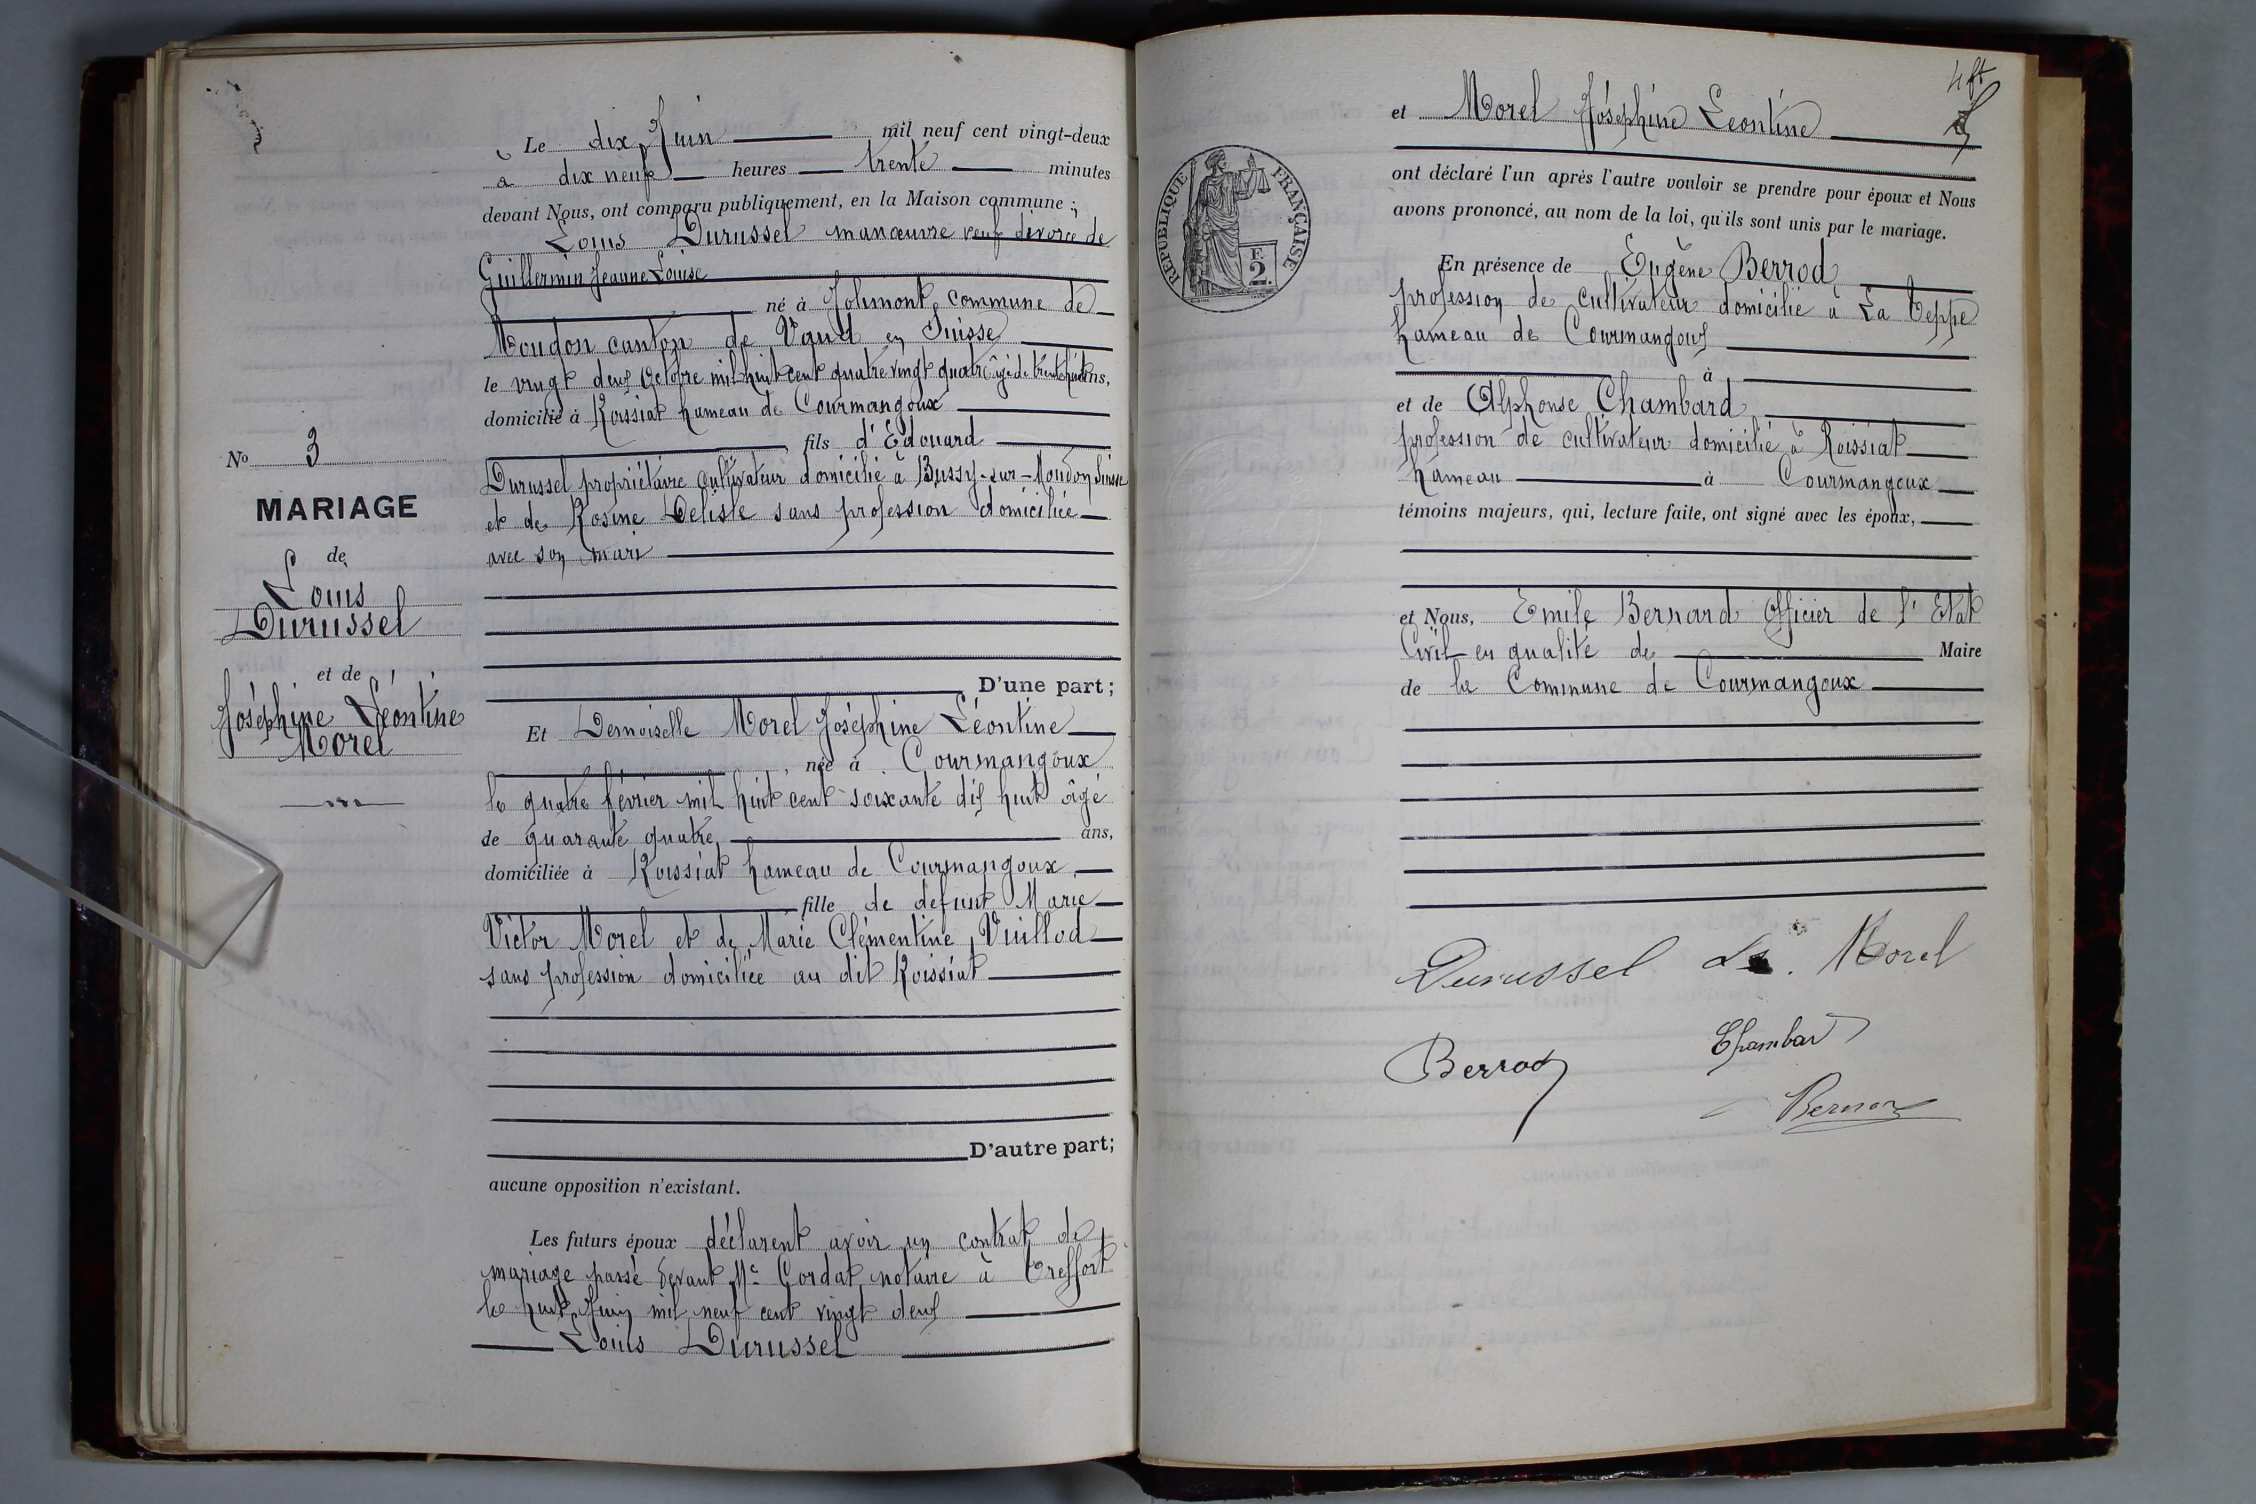 Le dix Juin mil neuf cent vingt-deux
à dix neuf heures trente minutes
devant Nous, ont comparu publiquement, en la Maison commune :
Louis Durussel manœuvre veuf divorcé de
Guillermin Jeanne Louise
né à commune de
Moudon canton de Vaud en Suisse
le vingt deux Octobre mil huit cent quatre vingt quatre âgé de trente huit ans,
domicilié à Roissiat hameau de Courmangoux
fils d'Édouard
Durussel propriétaire cultivateur domicilié à Bussy-sur-Moudon Suisse
et de Rosine Delisle sans profession domiciliée
avec son mari
D'une part;
Et Demoiselle Morel Joséphine Léontine
née à Courmangoux
le quatre février mil huit cent soixante dix huit âgé
de quarante quatre ans,
domiciliée à Roissiat hameau de Courmangoux
fille de defunt Marie
Victor Morel et de Marie Clémentine Vuillod
sans profession domiciliée au dit Roissiat
D'autre part;
aucune opposition n'existant.
Les futurs époux déclarent avoir un contrat de
mariage passé devant Me Cordat notaire à Treffort
le huit Juin mil neuf cent vingt deux
Louis Durussel
No 3
MARIAGE
de
Louis
Durussel
et de
Joséphine Léontine
Morel
et Morel Joséphine Leontine
ont déclaré l'un après l'autre vouloir se prendre pour époux et Nous
avons prononcé, au nom de la loi, qu'ils sont unis par le mariage.
RÉPUBLIQUE FRANÇAISE
F.
2.
En présence de Eugène Berrod
profession de cultivateur domicilié à La Teppe
hameau de Courmangoux
à
et de Alphonse Chambard
profession de cultivateur domicilié à Roissiat
hameau à Courmangoux
témoins majeurs, qui, lecture faite, ont signé avec les époux,
et Nous, Emile Bernard Officier de l'Etat
Civil en qualité de Maire
de la Commune de Courmangoux
Durussel Ls. Morel
Berrod Chambard
Bernard